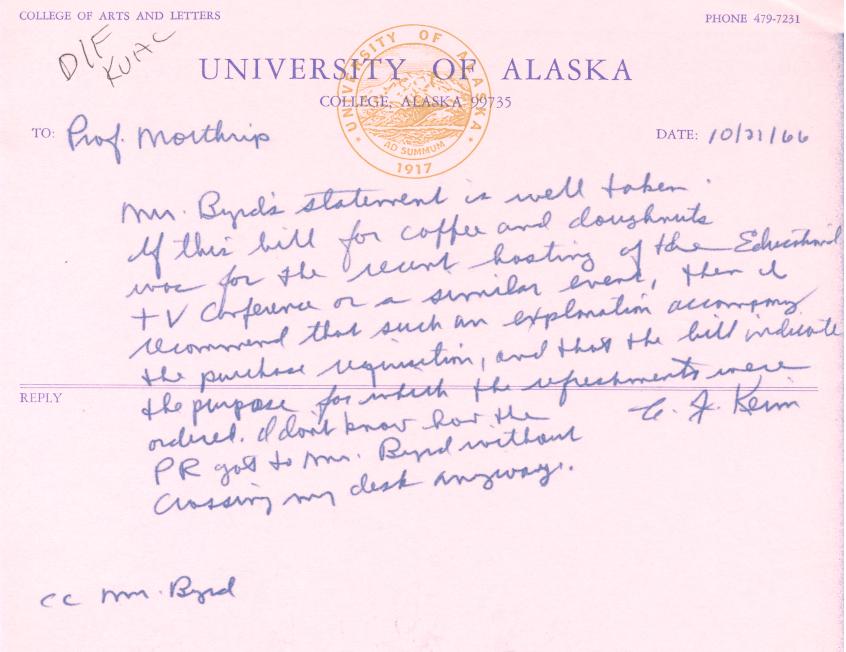 COLLEGE OF ARTS AND LETTERS
PHONE 479-7231
D/F
KUAC
UNIVERSITY OF ALASKA
COLLEGE, ALASKA 99735
UNIVERSITY OF ALASKA
AD SUMMUM
1917
TO: Prof. Northrip
DATE: 10/21/66
Mr. Byrd's statement is well taken.
If this bill for coffee and doughnuts
was for the recent hosting of the Educational
TV Conference or a similar event, then I
recommend that such an explanation accompany
the purchase requisition, and that the bill indicate
REPLY
the purpose for which the refreshments were
ordered. I don't know how the
C. J. Keim
PR got to Mr. Byrd without
crossing my desk anyway.
cc Mr. Byrd